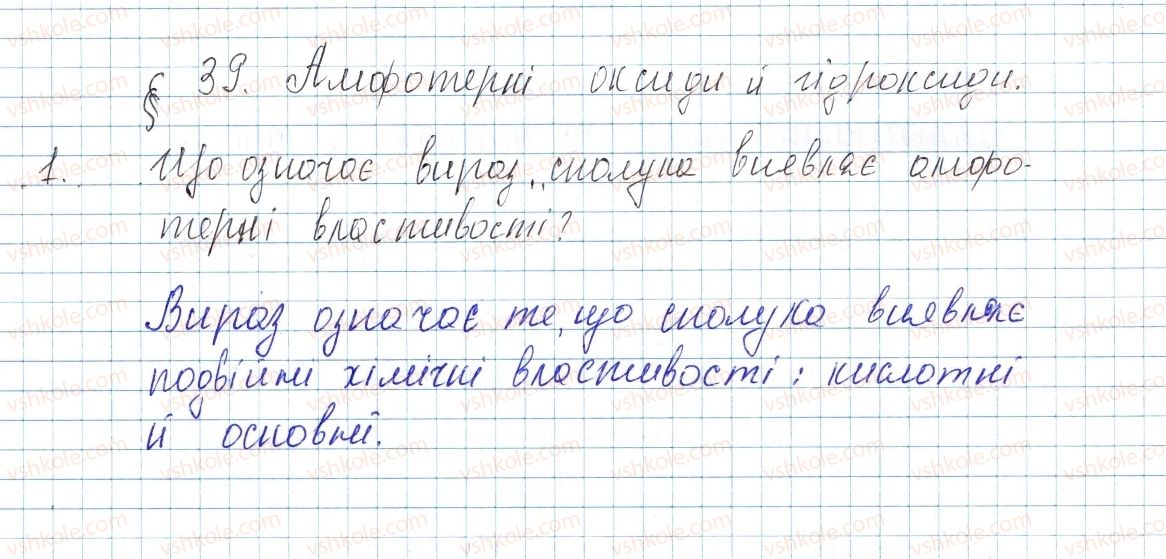 § 39. Амфотерні оксиди й гідроксиди.
1. Що означає вираз „сполука виявляє амфо-
терні властивості?
Вираз означає те, що сполука виявляє
подвійні хімічні властивості: кислотні
й основні.